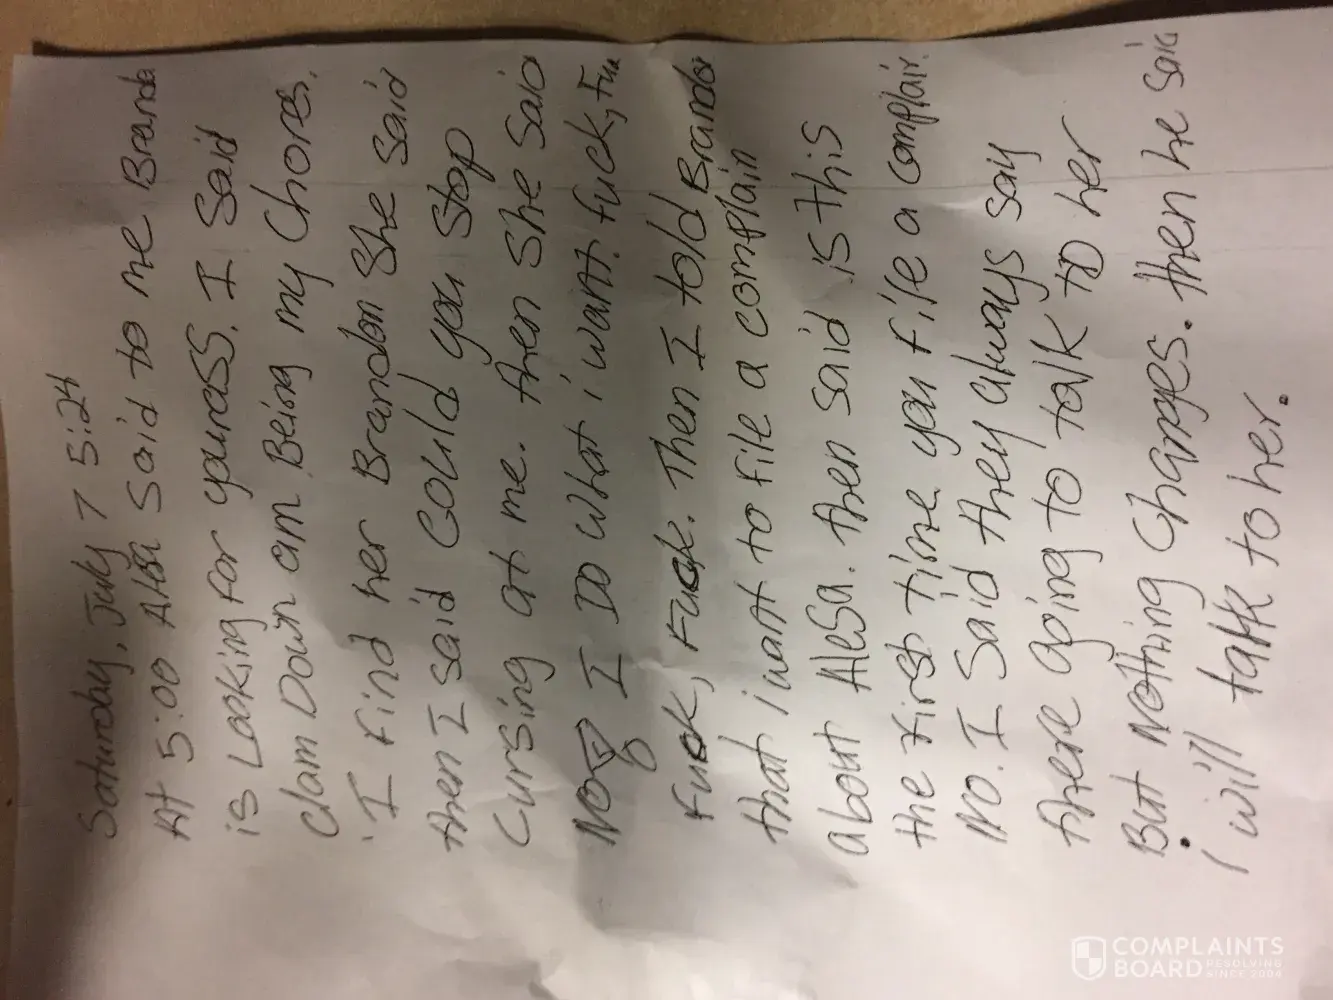 Saturday, July 7 5:24
At 5:00 Alsa said to me Branda
is Looking For yourass. I Said
Clam Down am Being my Chores.
I Find her Brandon She said
then I said Could you Stop
Cursing at me. then She Said
No I Do What i want. fuck, Fu
Fuck, Fuck. Then I told Brandon
that i want to File a complain
about AleSa. then said is this
the First time you File a complain.
No. I Said they always say
there going to talk to her
But Nothing Changes. then he said
i will talk to her.
COMPLAINTS
BOARD RESOLVING
SINCE 2004